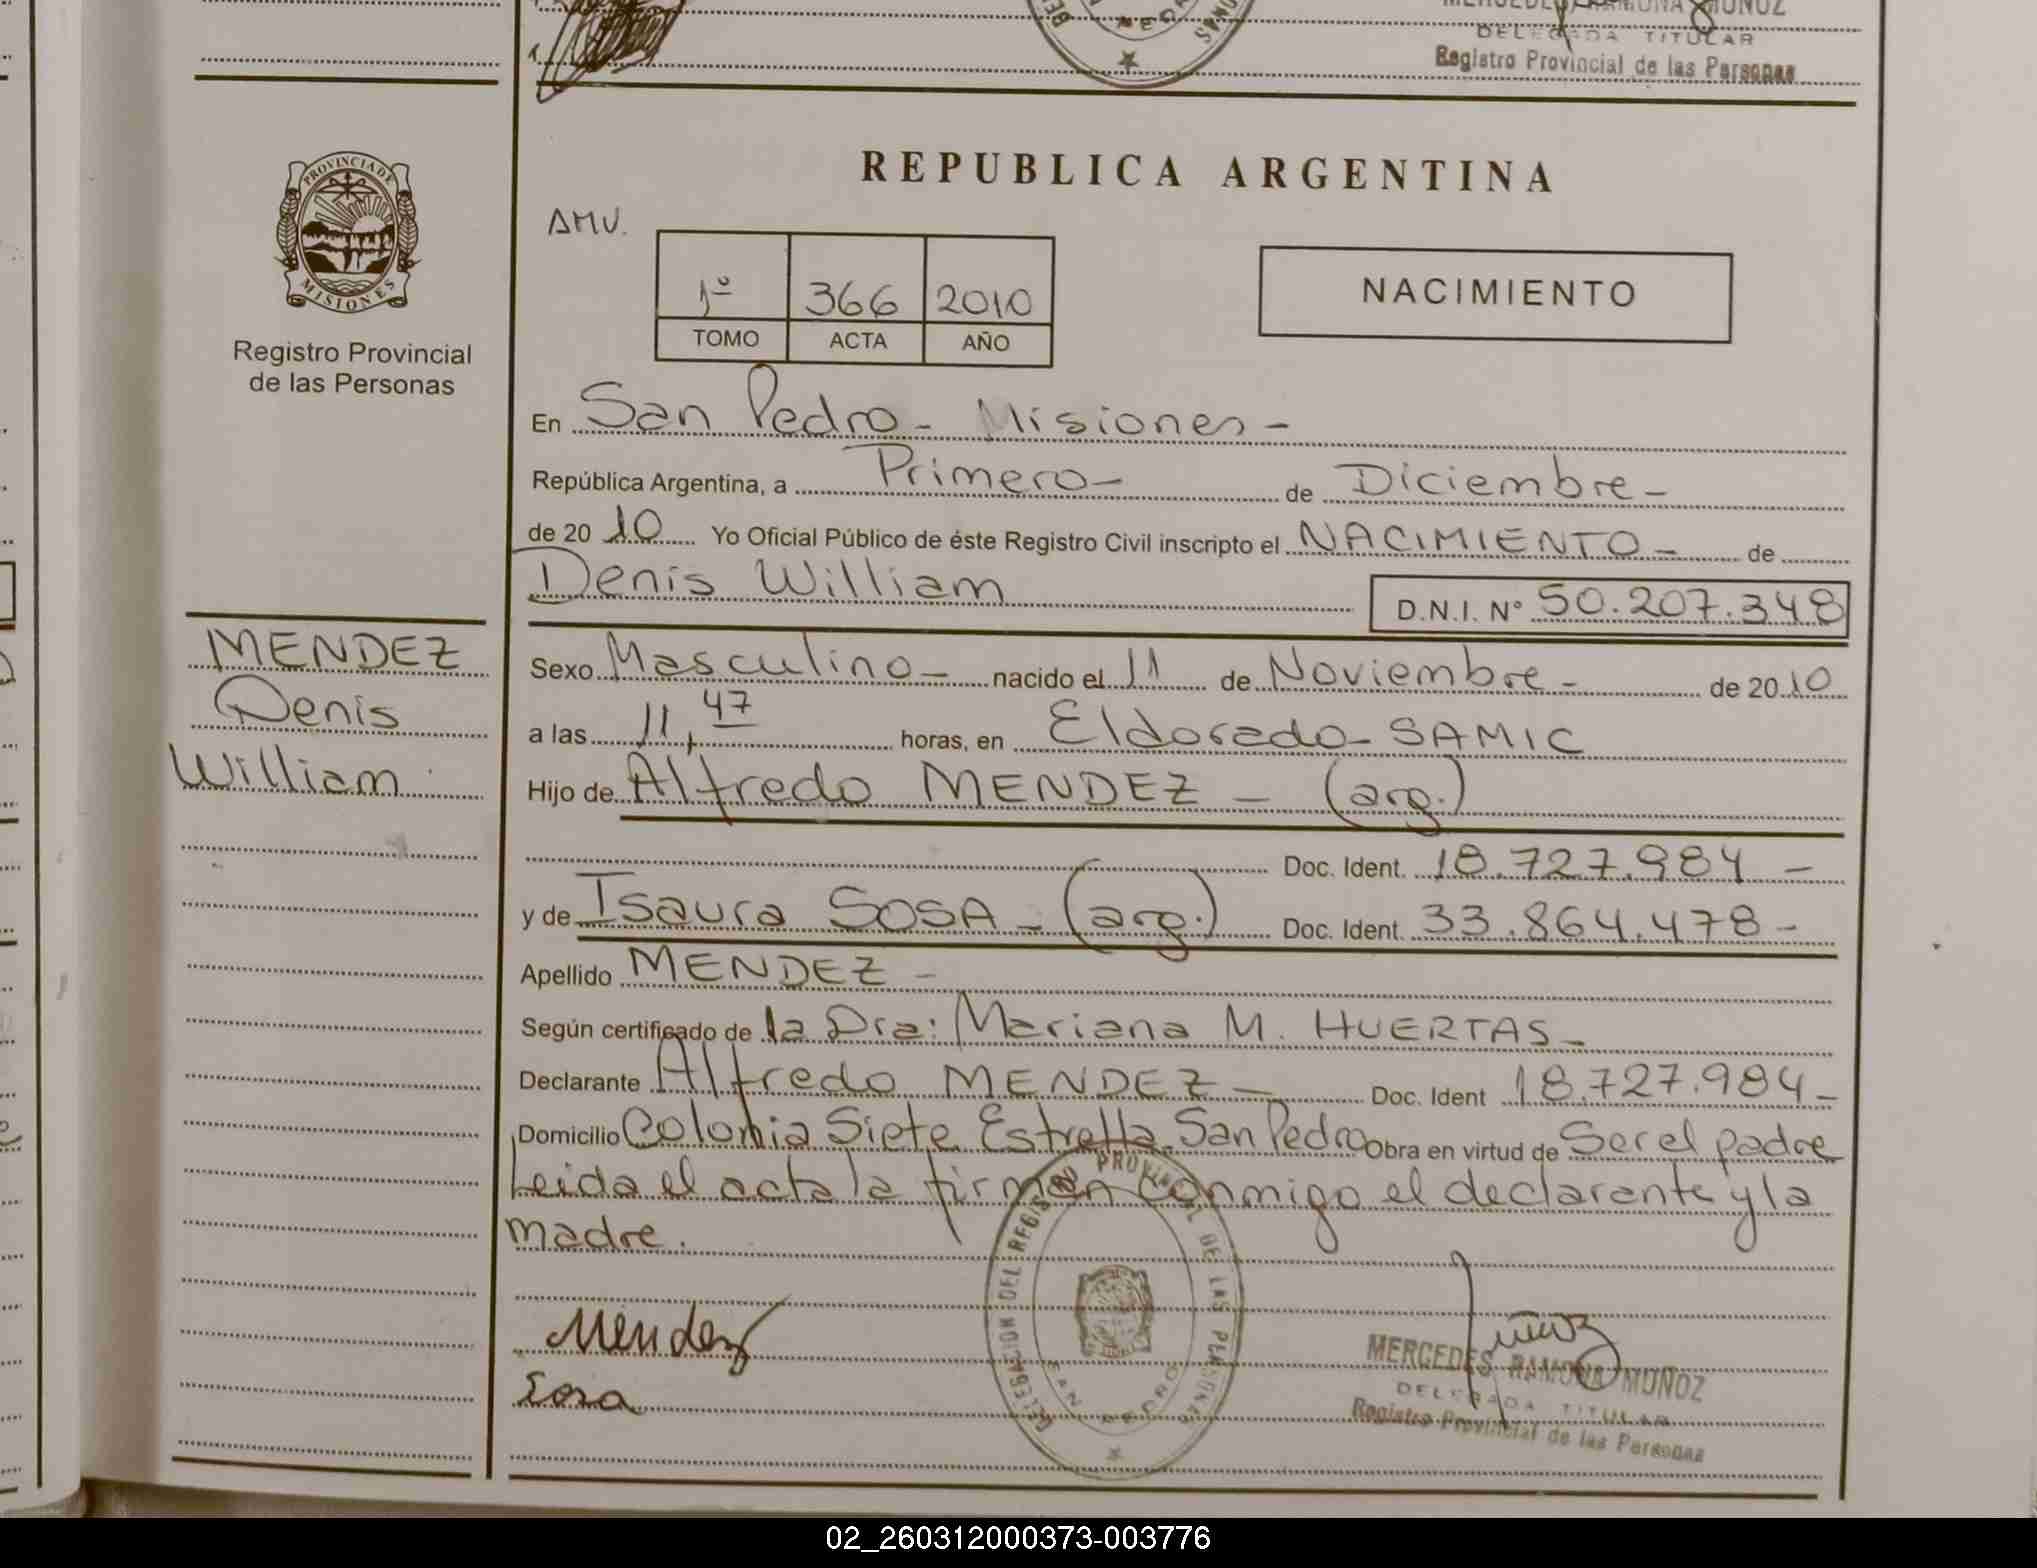 MERCEDES RAMONA MUÑOZ
DELEGADA TITULAR
Registro Provincial de las Personas
PROVINCIA DE
MISIONES
Registro Provincial
de las Personas
REPUBLICA ARGENTINA
AMV.
1º 366 2010
TOMO ACTA AÑO
NACIMIENTO
En San Pedro - Misiones -
República Argentina, a Primero - de Diciembre -
de 20 10 Yo Oficial Público de éste Registro Civil inscripto el NACIMIENTO - de
Denis William
D.N.I. Nº 50.207.348
MENDEZ
Denis
William
Sexo Masculino - nacido el 11 de Noviembre - de 20 10
a las 11,47 horas, en Eldorado - SAMIC
Hijo de Alfredo MENDEZ - (arg.)
Doc. Ident. 18.727.984 -
y de Isaura SOSA - (arg.) Doc. Ident. 33.864.478 -
Apellido MENDEZ -
Según certificado de la Dra: Mariana M. HUERTAS -
Declarante Alfredo MENDEZ - Doc. Ident 18.727.984 -
Domicilio Colonia Siete Estrella San Pedro Obra en virtud de Ser el padre
Leida el acta la firman conmigo el declarante y la
madre.
DELEGACION DEL REGISTRO PROVINCIAL DE LAS PERSONAS
SAN PEDRO
Mendez
Sosa
MERCEDES RAMONA MUÑOZ
DELEGADA TITULAR
Registro Provincial de las Personas
02_260312000373-003776